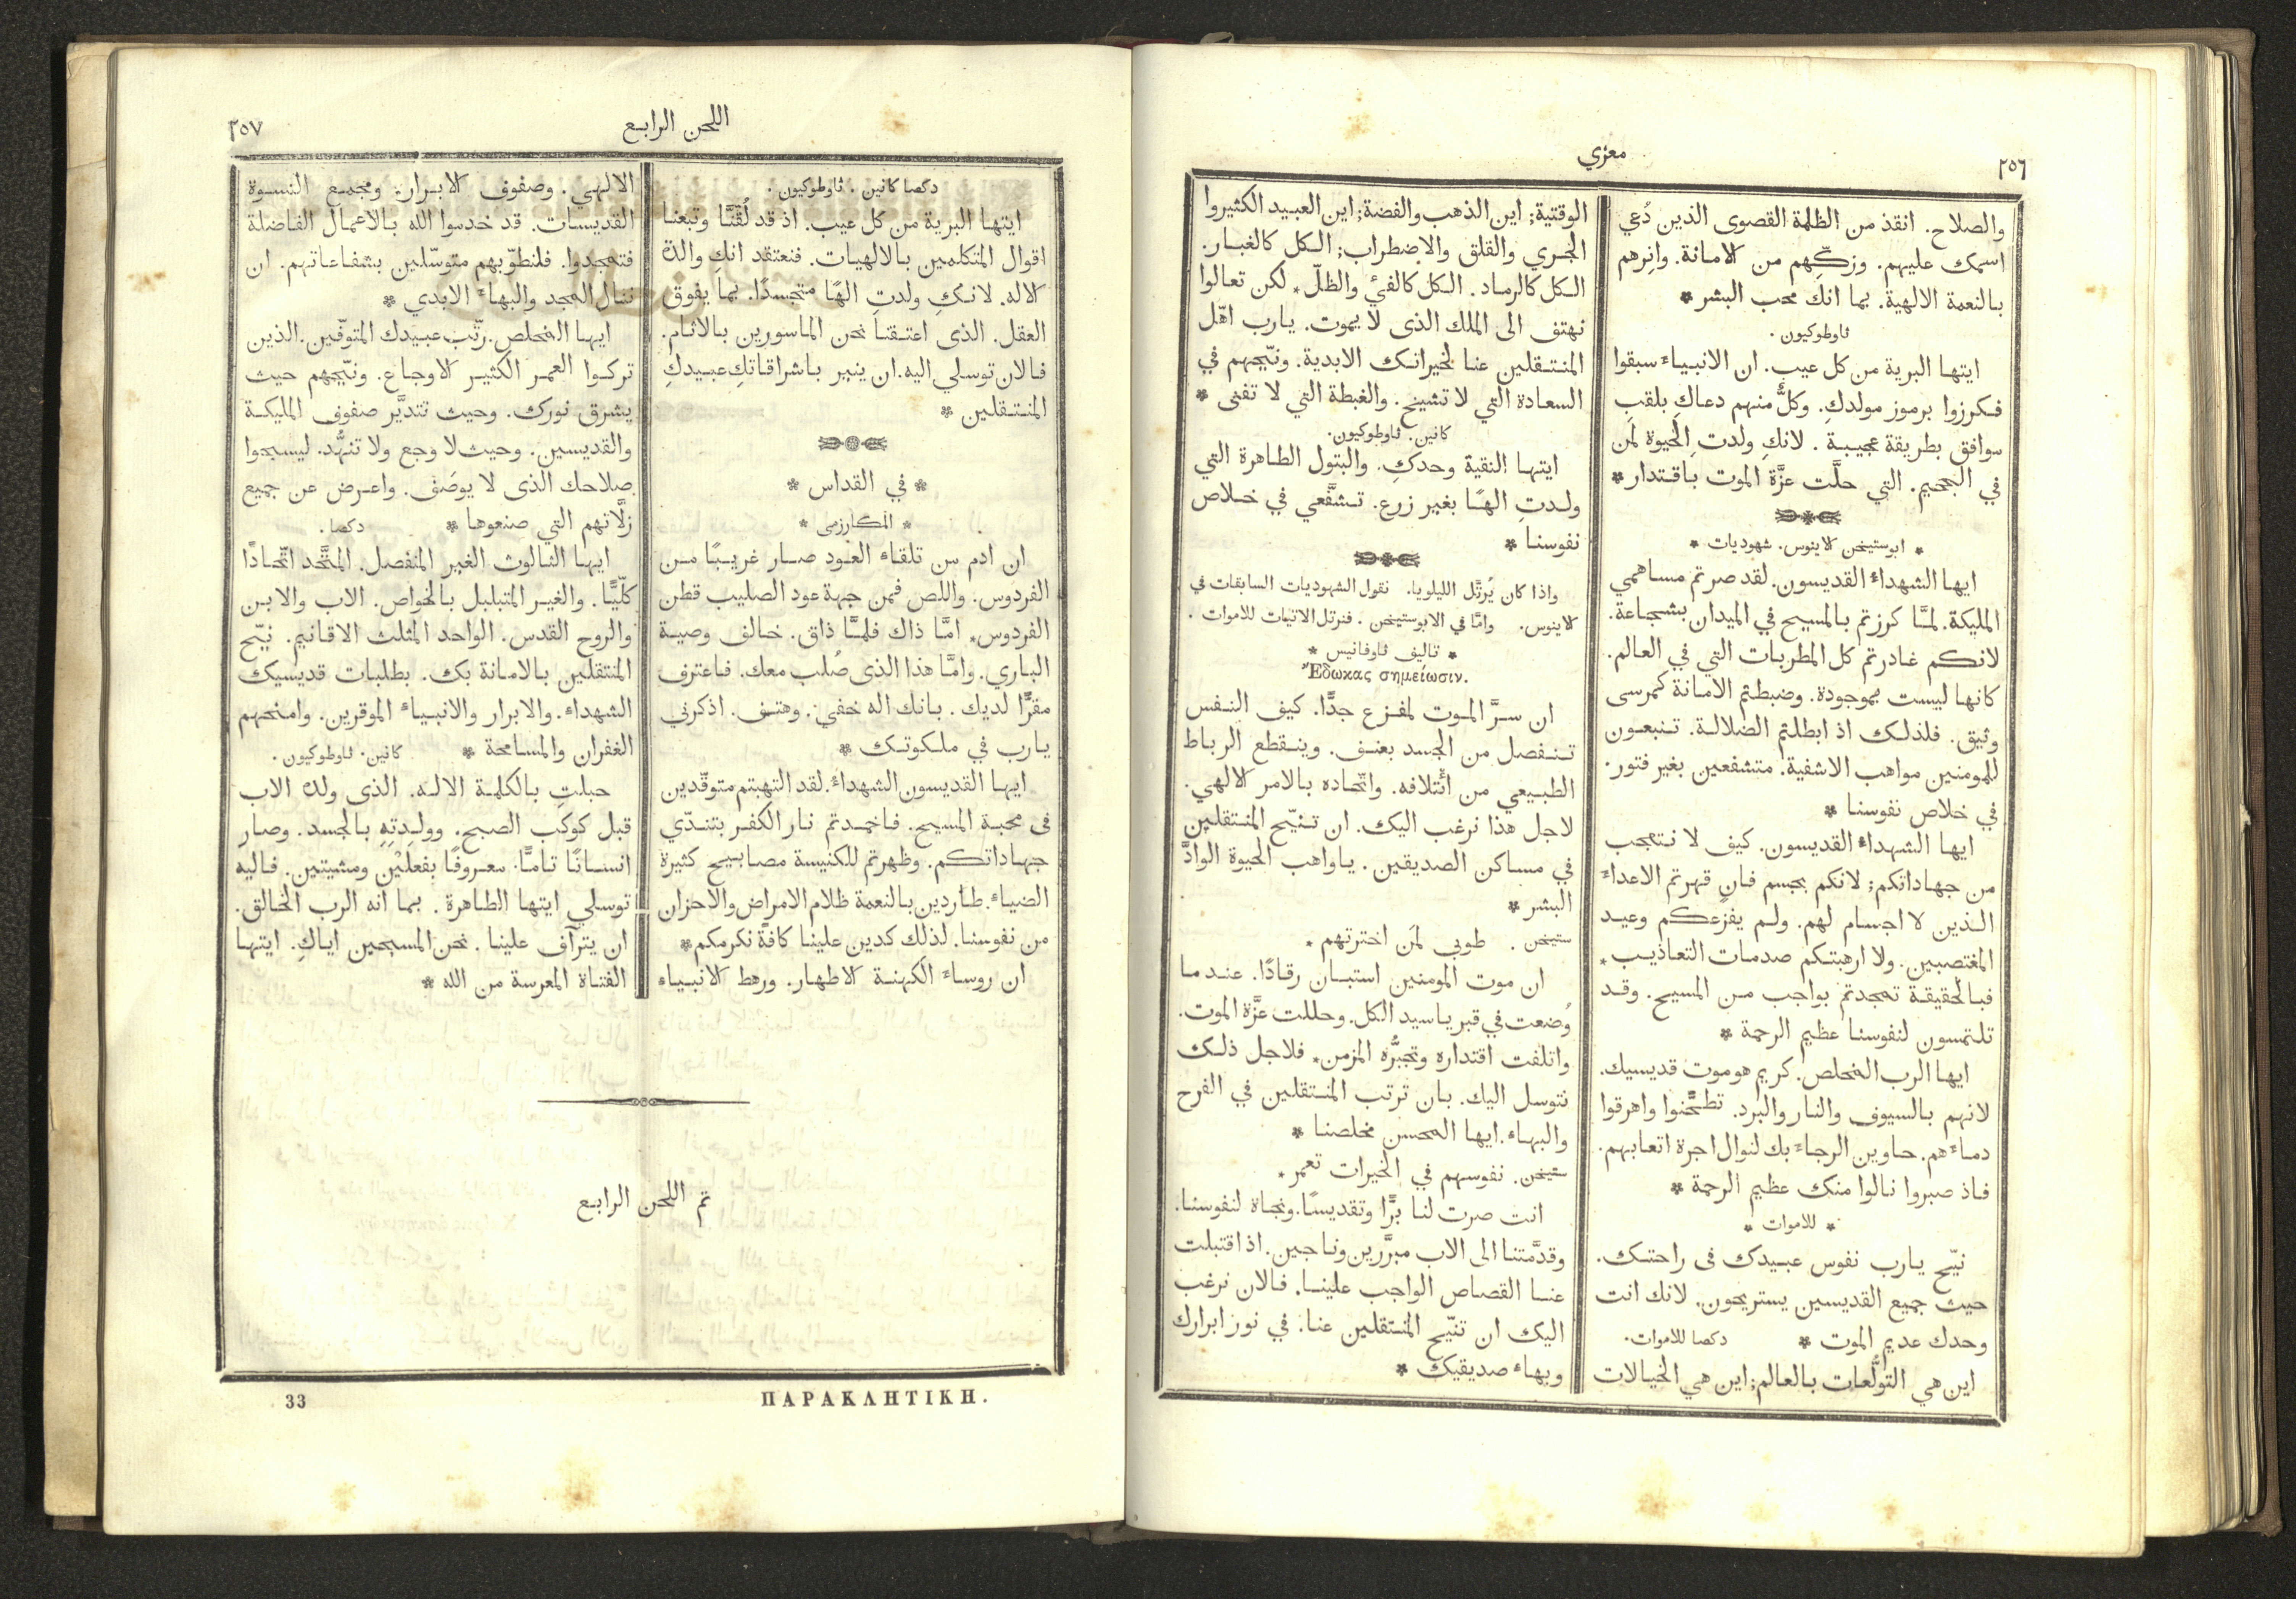 ٢٥٦
معزي
والصلاح. انقذ من الظلمة القصوى الذين دُعي
اسمك عليهم. وزكّهم من الامانة. وانِرهم
بالنعمة الالهية. بما انك محب البشر *
ثاوطوكيون.
ايتها البرية من كل عيب. ان الانبياء سبقوا
فكرزوا برموز مولدكِ. وكلٌّ منهم دعاكِ بلقبِ
سوافق بطريقة عجيبة. لانكِ ولدتِ الحيوة لمَن
في الجحيم. التي حلَّت عزَّة الموت باقتدار *
* ابوستيخن لاينوس. شهوديات *
ايها الشهداء القديسون. لقد صرتم مساهمي
المليكة. لمَّا كرزتم بالمسيح في الميدان بشجاعة.
لانكم غادرتم كل المطربات التي في العالم.
كانها ليست بموجودة. وضبطتم الامانة كمرسى
وثيق. فلذلك اذ ابطلتم الضلالة. تنبعون
للمومنين مواهب الاشفية. متشفعين بغير فتور.
في خلاص نفوسنا *
ايها الشهداء القديسون. كيف لا نتعجب
من جهاداتكم; لانكم بجسم فانٍ قهرتم الاعداء
الذين لا اجسام لهم. ولم يفزعكم وعيد
المغتصبين. ولا ارهبتكم صدمات التعاذيب *
فبالحقيقة تمجدتم بواجب من المسيح. وقد
تلتمسون لنفوسنا عظيم الرحمة *
ايها الرب المخلص. كريم هو موت قديسيك.
لانهم بالسيوف والنار والبرد. تطحَّنوا واهرقوا
دماءهم. حاوين الرجاء بك لنوال اجرة اتعابهم.
فاذ صبروا نالوا منك عظيم الرحمة *
* للاموات *
نيّح يارب نفوس عبيدك فى راحتك.
حيث جميع القديسين يستريحون. لانك انت
وحدك عديم الموت * دكصا للاموات.
اين هي التولُّعات بالعالم; اين هي الخيالات
الوقتية; اين الذهب والفضة; اين العبيد الكثيروا
الجري والقلق والاضطراب; الكل كالغبار.
الكل كالرماد. الكل كالفئ والظلّ * لكن تعالوا
نهتف الى الملك الذى لا يموت. يارب اهّل
المنتقلين عنا لخيراتك الابدية. ونيّحهم في
السعادة التي لا تشيخ. والغبطة التي لا تفنى *
كانين. ثاوطوكيون.
ايتها النقية وحدكِ. والبتول الطاهرة التي
ولدتِ الهًا بغير زرع. تشفَّعي في خلاص
نفوسنا *
واذا كان يُرتَّل الليلويا. نقول الشهوديات السابقات في
لاينوس. وامَّا في الابوستيخن. فنرتل الاتيات للاموات.
* تاليف ثاوفانيس *
Ἔδωκας σημείωσιν.
ان سرَّ الموت لمفزع جدًّا. كيف النفس
تنفصل من الجسد بعنف. وينقطع الرباط
الطبيعي من ائتلافه. واتّحاده بالامر الالهي.
لاجل هذا نرغب اليك. ان تنيّح المنتقلين
في مساكن الصديقين. ياواهب الحيوة الوادَّ
البشر *
ستيخن. طوبى لمَن اخترتهم *
ان موت المومنين استبان رقادًا. عندما
وُضعت في قبر ياسيد الكل. وحللت عزَّة الموت.
واتلفت اقتداره وتجبُّره المزمن * فلاجل ذلك
نتوسل اليك. بان ترتب المنتقلين في الفرح
والبهاء. ايها المحسن مخلصنا *
ستيخن. نفوسهم في الخيرات تعمر *
انت صرت لنا برًّا وتقديسًا. ونجاة لنفوسنا.
وقدَّمتنا الى الاب مبرَّرين وناجين. اذ اقتبلت
عنا القصاص الواجب علينا. فالان نرغب
اليك ان تنيّح المنتقلين عنا. في نور ابرارك
وبهاء صديقيك *
اللحن الرابع
٢٥٧
دكصا كانين. ثاوطوكيون.
ايتها البرية من كل عيب. اذ قد لُقّنَّا وتبعنا
اقوال المتكلمين بالالهيات. فنعتقد انكِ والدة
الاله. لانكِ ولدتِ الهًا متجسدًا. بما يفوق
العقل. الذى اعتقنا نحن الماسورين بالاثام.
فالان توسلي اليه. ان ينير باشراقاتكِ عبيدكِ
المنتقلين *
* في القداس *
* المكارزمى *
ان ادم من تلقاء العود صار غريبًا من
الفردوس. واللص فمن جهة عود الصليب قطن
الفردوس * امَّا ذاك فلمَّا ذاق. خالف وصية
الباري. وامَّا هذا الذى صُلب معك. فاعترف
مقرًّا لديك. بانك اله خفيّ. وهتف. اذكرني
يارب في ملكوتك *
ايها القديسون الشهداء. لقد التهبتم متوقّدين
فى محبة المسيح. فاخمدتم نار الكفر بتندّي
جهاداتكم. وظهرتم للكنيسة مصابيح كثيرة
الضياء. طاردين بالنعمة ظلام الامراض والاحزان
من نفوسنا. لذلك كدين علينا كافةً نكرمكم *
ان روساء الكهنة الاطهار. ورهط الانبياء
الالهي. وصفوف الابرار. ومجمع النسوة
القديسات. قد خدموا الله بالاعمال الفاضلة
فتمجدوا. فلنطوّبهم متوسّلين بشفاعاتهم. ان
ننال المجد والبهاء الابدي *
ايها المخلص. رتّب عبيدك المتوفّين. الذين
تركوا العمر الكثير الاوجاع. ونيّحهم حيث
يشرق نورك. وحيث تتديَّر صفوف المليكة
والقديسين. وحيث لا وجع ولا تنهُّد. ليسبحوا
صلاحك الذى لا يوصَف. واعرض عن جميع
زلَّاتهم التي صنعوها * دكصا.
ايها الثالوث الغير المنفصل. المتَّحد اتّحادًا
كلّيًّا. والغير المتبلبل بالخواص. الاب والابن
والروح القدس. الواحد المثلث الاقانيم. نيّح
المنتقلين بالامانة بك. بطلبات قديسيك
الشهداء. والابرار والانبياء الموقرين. وامنحهم
الغفران والمسامحة * كانين. ثاوطوكيون.
حبلتِ بالكلمة الاله. الذى ولده الاب
قبل كوكب الصبح. وولدتِهِ بالجسد. وصار
انسانًا تامًّا. معروفًا بفعلَيْن ومشيتين. فاليه
توسلي ايتها الطاهرة. بما انه الرب الخالق.
ان يترآف علينا. نحن المسبحين اياكِ. ايتها
الفتاة المعرسة من الله *
تم اللحن الرابع
ΠΑΡΑΚΛΗΤΙΚΗ.
33